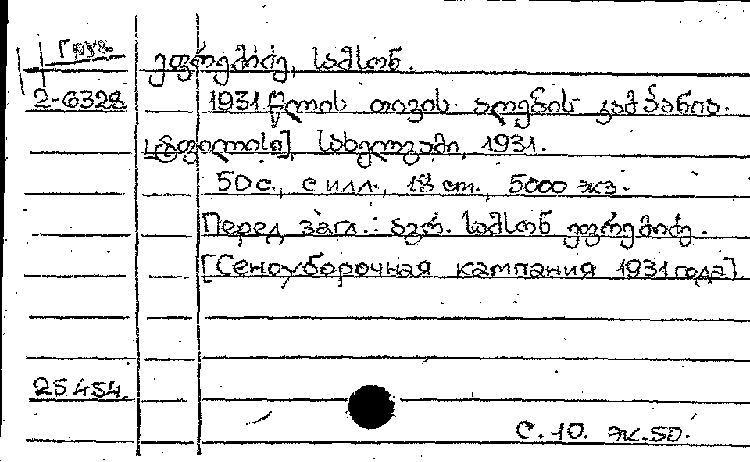 Груз.
ეფრემიძე, სამსონ.
2-6328
1931 წლის თივის აღების კამპანია.
[ტფილისი], სახელგამი, 1931.
50 с., с илл., 18 см., 5000 экз.
Перед загл.: ავტ. სამსონ ეფრემიძე.
[Сеноуборочная кампания 1931 года].
25454.
С. 10. эк. 50.